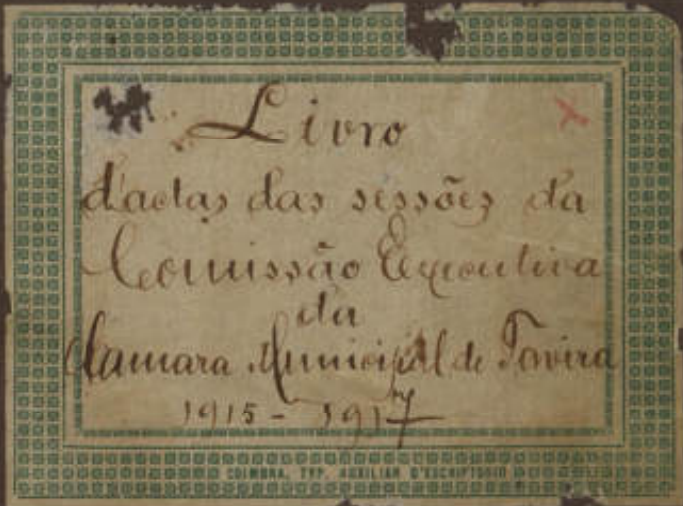 Livro
d'actas das sessões da
Comissão Executiva
da
Camara Municipal de Tavira
1915 - 1917
COIMBRA, TYP. AUXILIAR D'ESCRIPTORIO